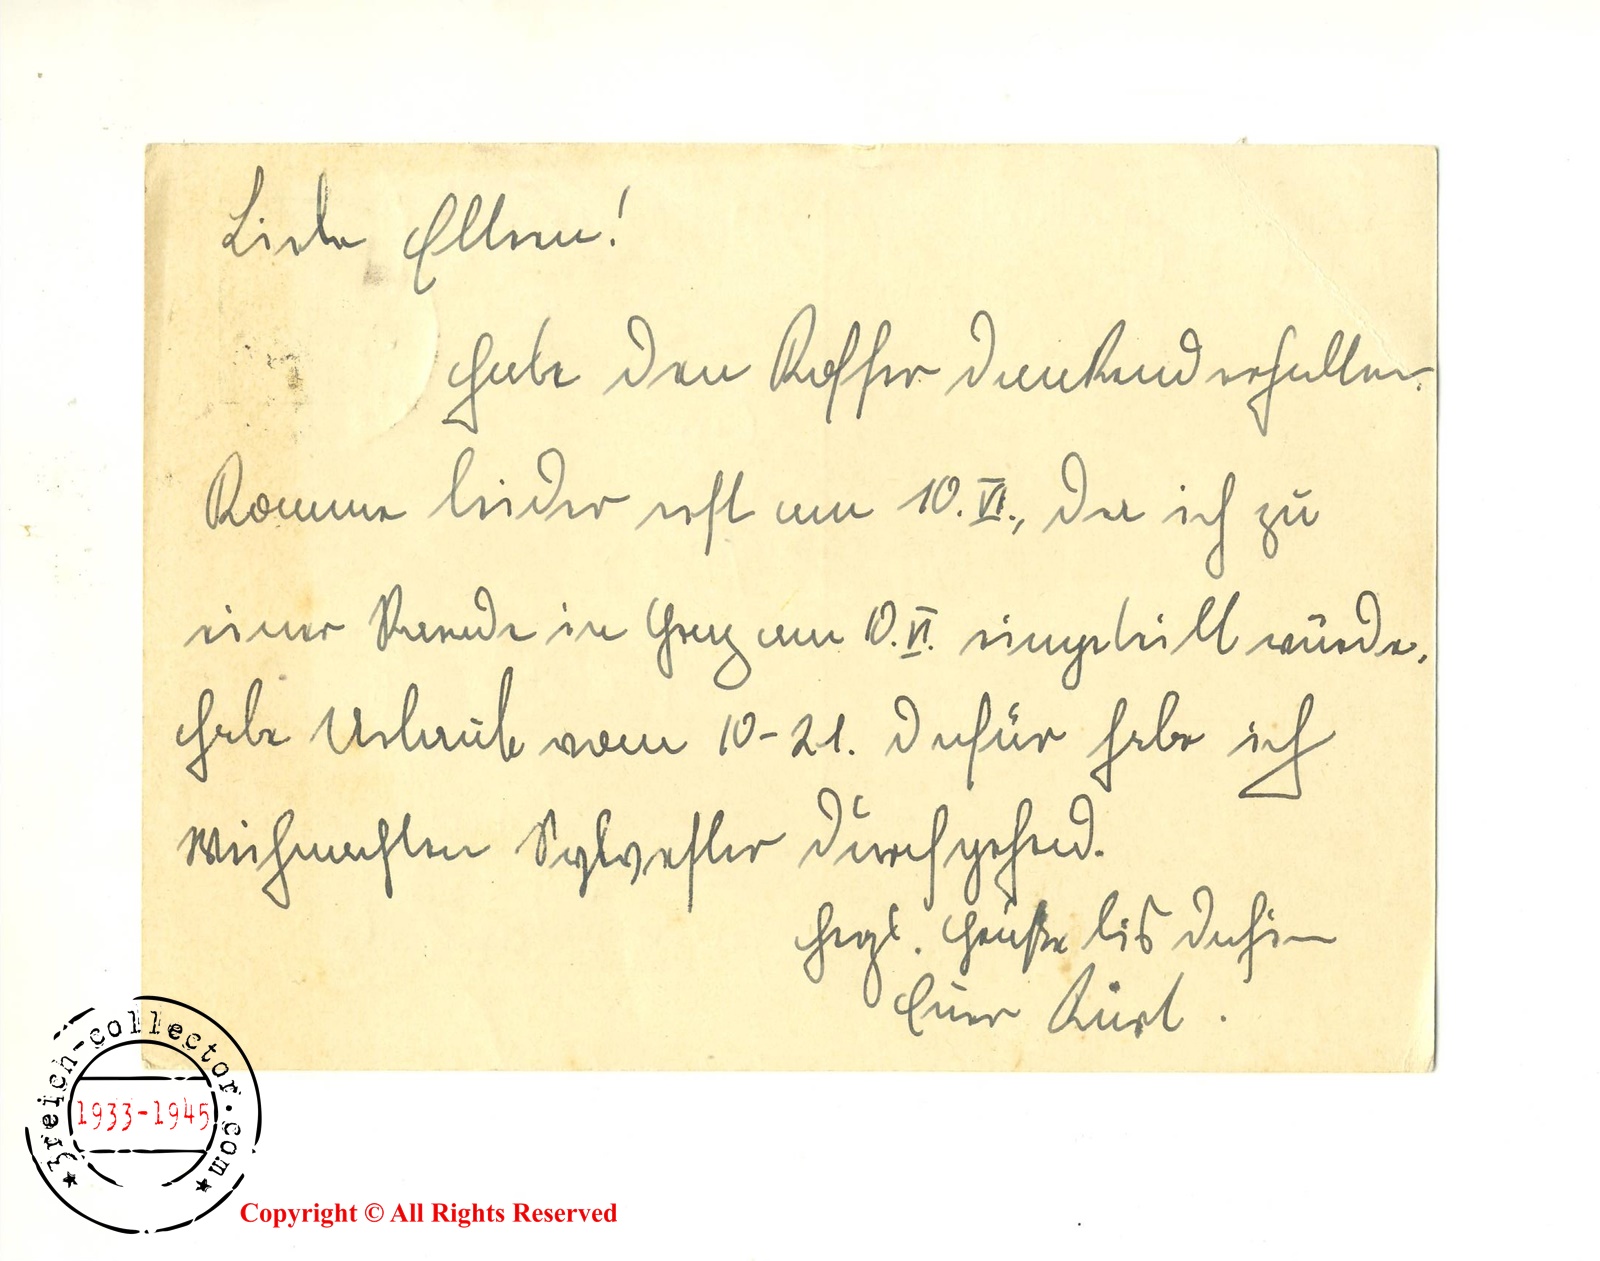 Liebe Eltern!
Habe den Koffer dankend erhalten.
Komme leider erst am 10. VI., da ich zu
einer Parade in Graz am 10. VI. eingeteilt wurde.
Habe Urlaub vom 10-21. dafür habe ich
Weihnachten Sylvester durchgehend.
Hrzl. Grüße bis dahin
Euer Kurt.
3reich-collector.com
1933-1945
Copyright © All Rights Reserved